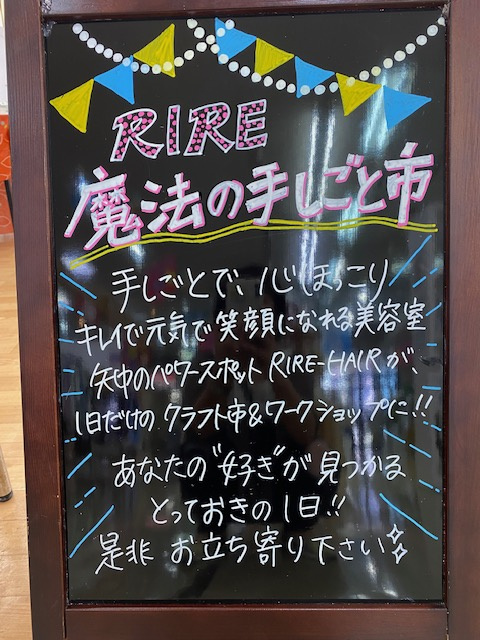 RIRE
魔法の手しごと市
手しごとで、心ほっこり
キレイで元気で笑顔になれる美容室
矢中のパワースポット RIRE-HAIRが、
1日だけの クラフト市&ワークショップに!!
あなたの"好き"が見つかる
とっておきの1日!!
是非 お立ち寄り下さい